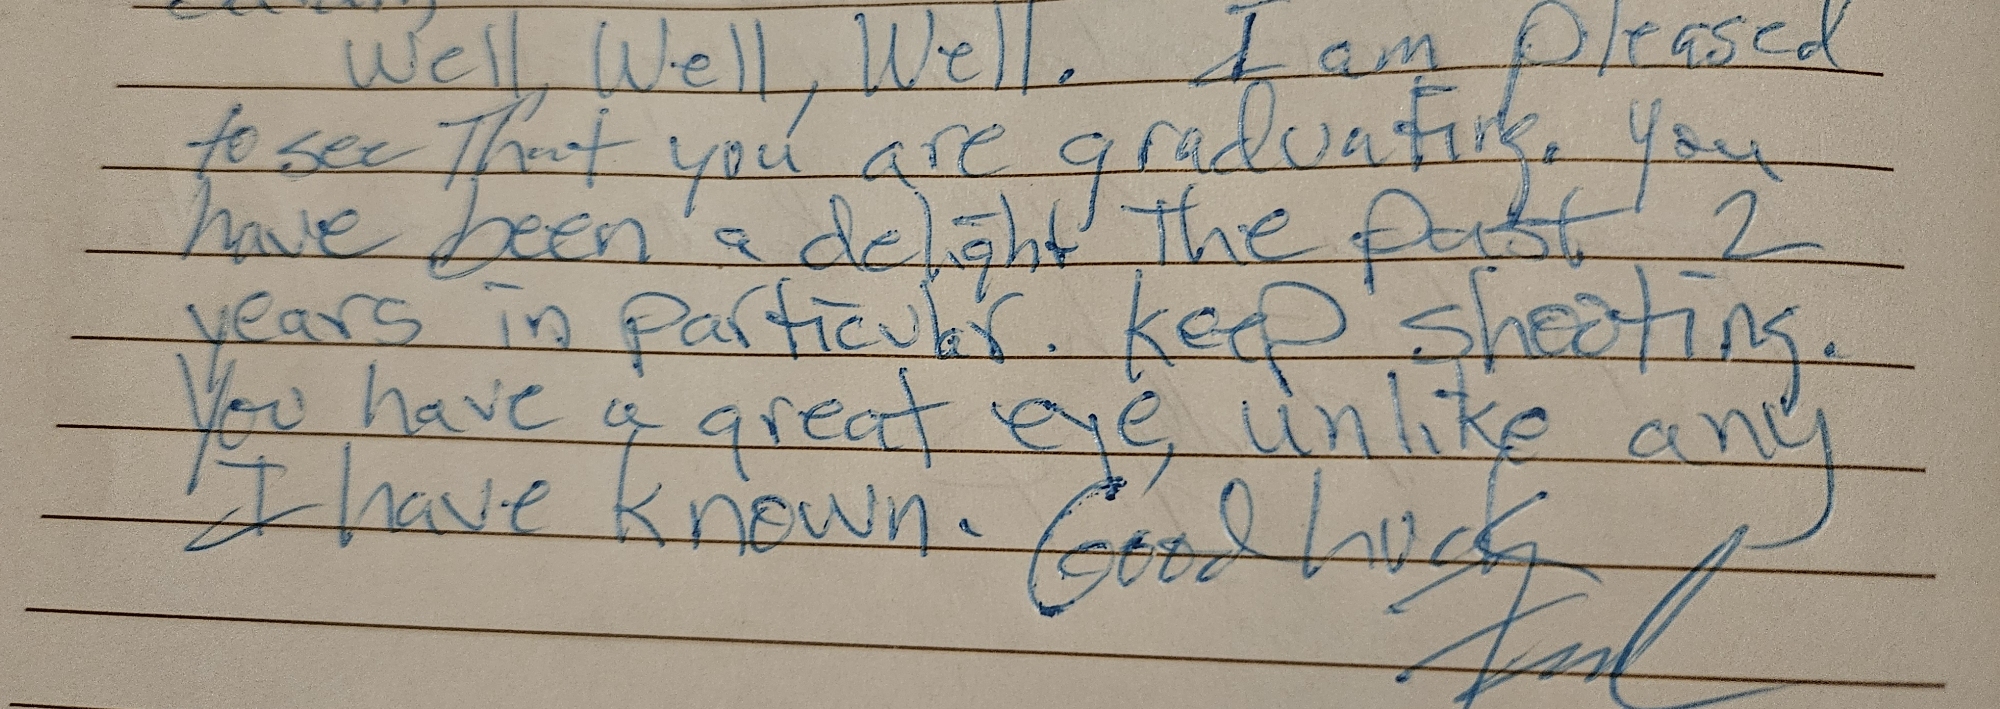 Well, Well, Well. I am pleased
to see That you are graduating. You
have been a delight The past 2
years in particular. Keep shooting.
You have a great eye, unlike any
I have known. Good luck